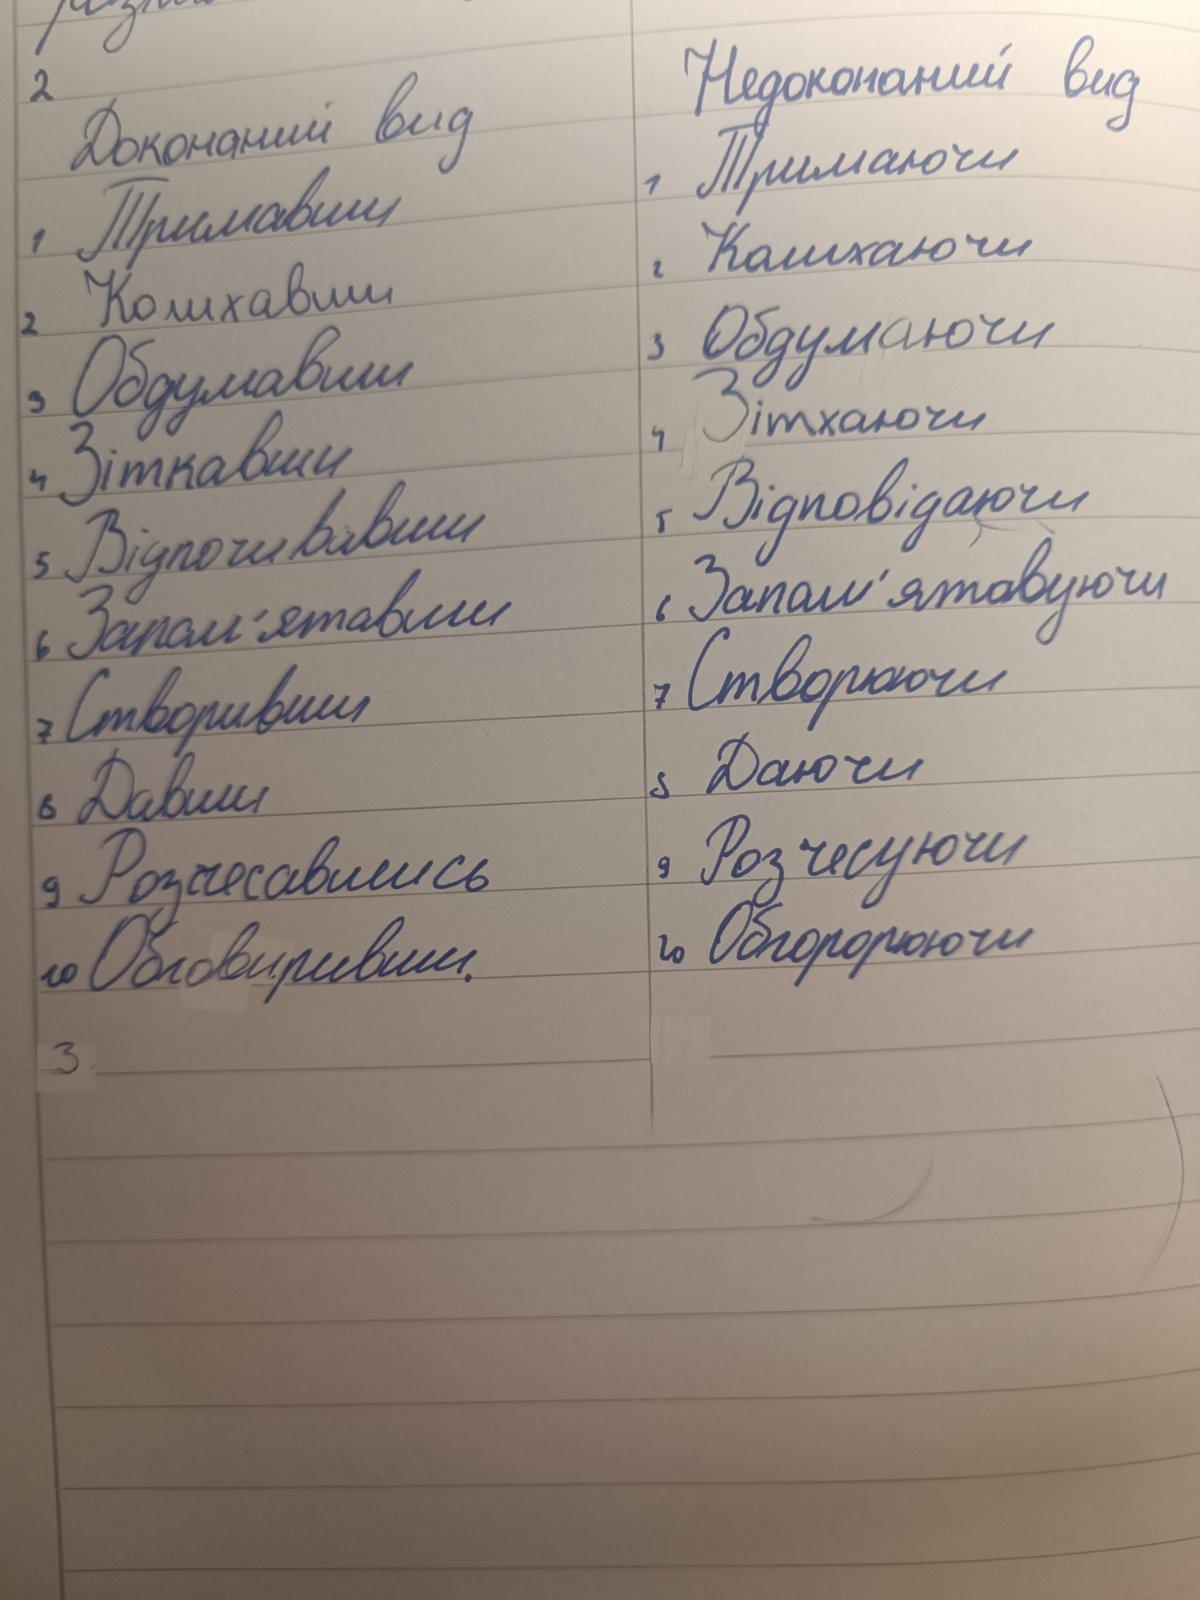 2
Доконаний вид
1 Тримавши
2 Колихавши
3 Обдумавши
4 Зіткавши
5 Відпочивавши
6 Запам'ятавши
7 Створивши
8 Давши
9 Розчесавшись
10 Обговиривши.
3.
Недоконаний вид
1 Тримаючи
2 Колихаючи
3 Обдумаючи
4 Зітхаючи
5 Відповідаючи
6 Запам'ятавуючи
7 Створюючи
8 Даючи
9 Розчесуючи
10 Обгорорюючи